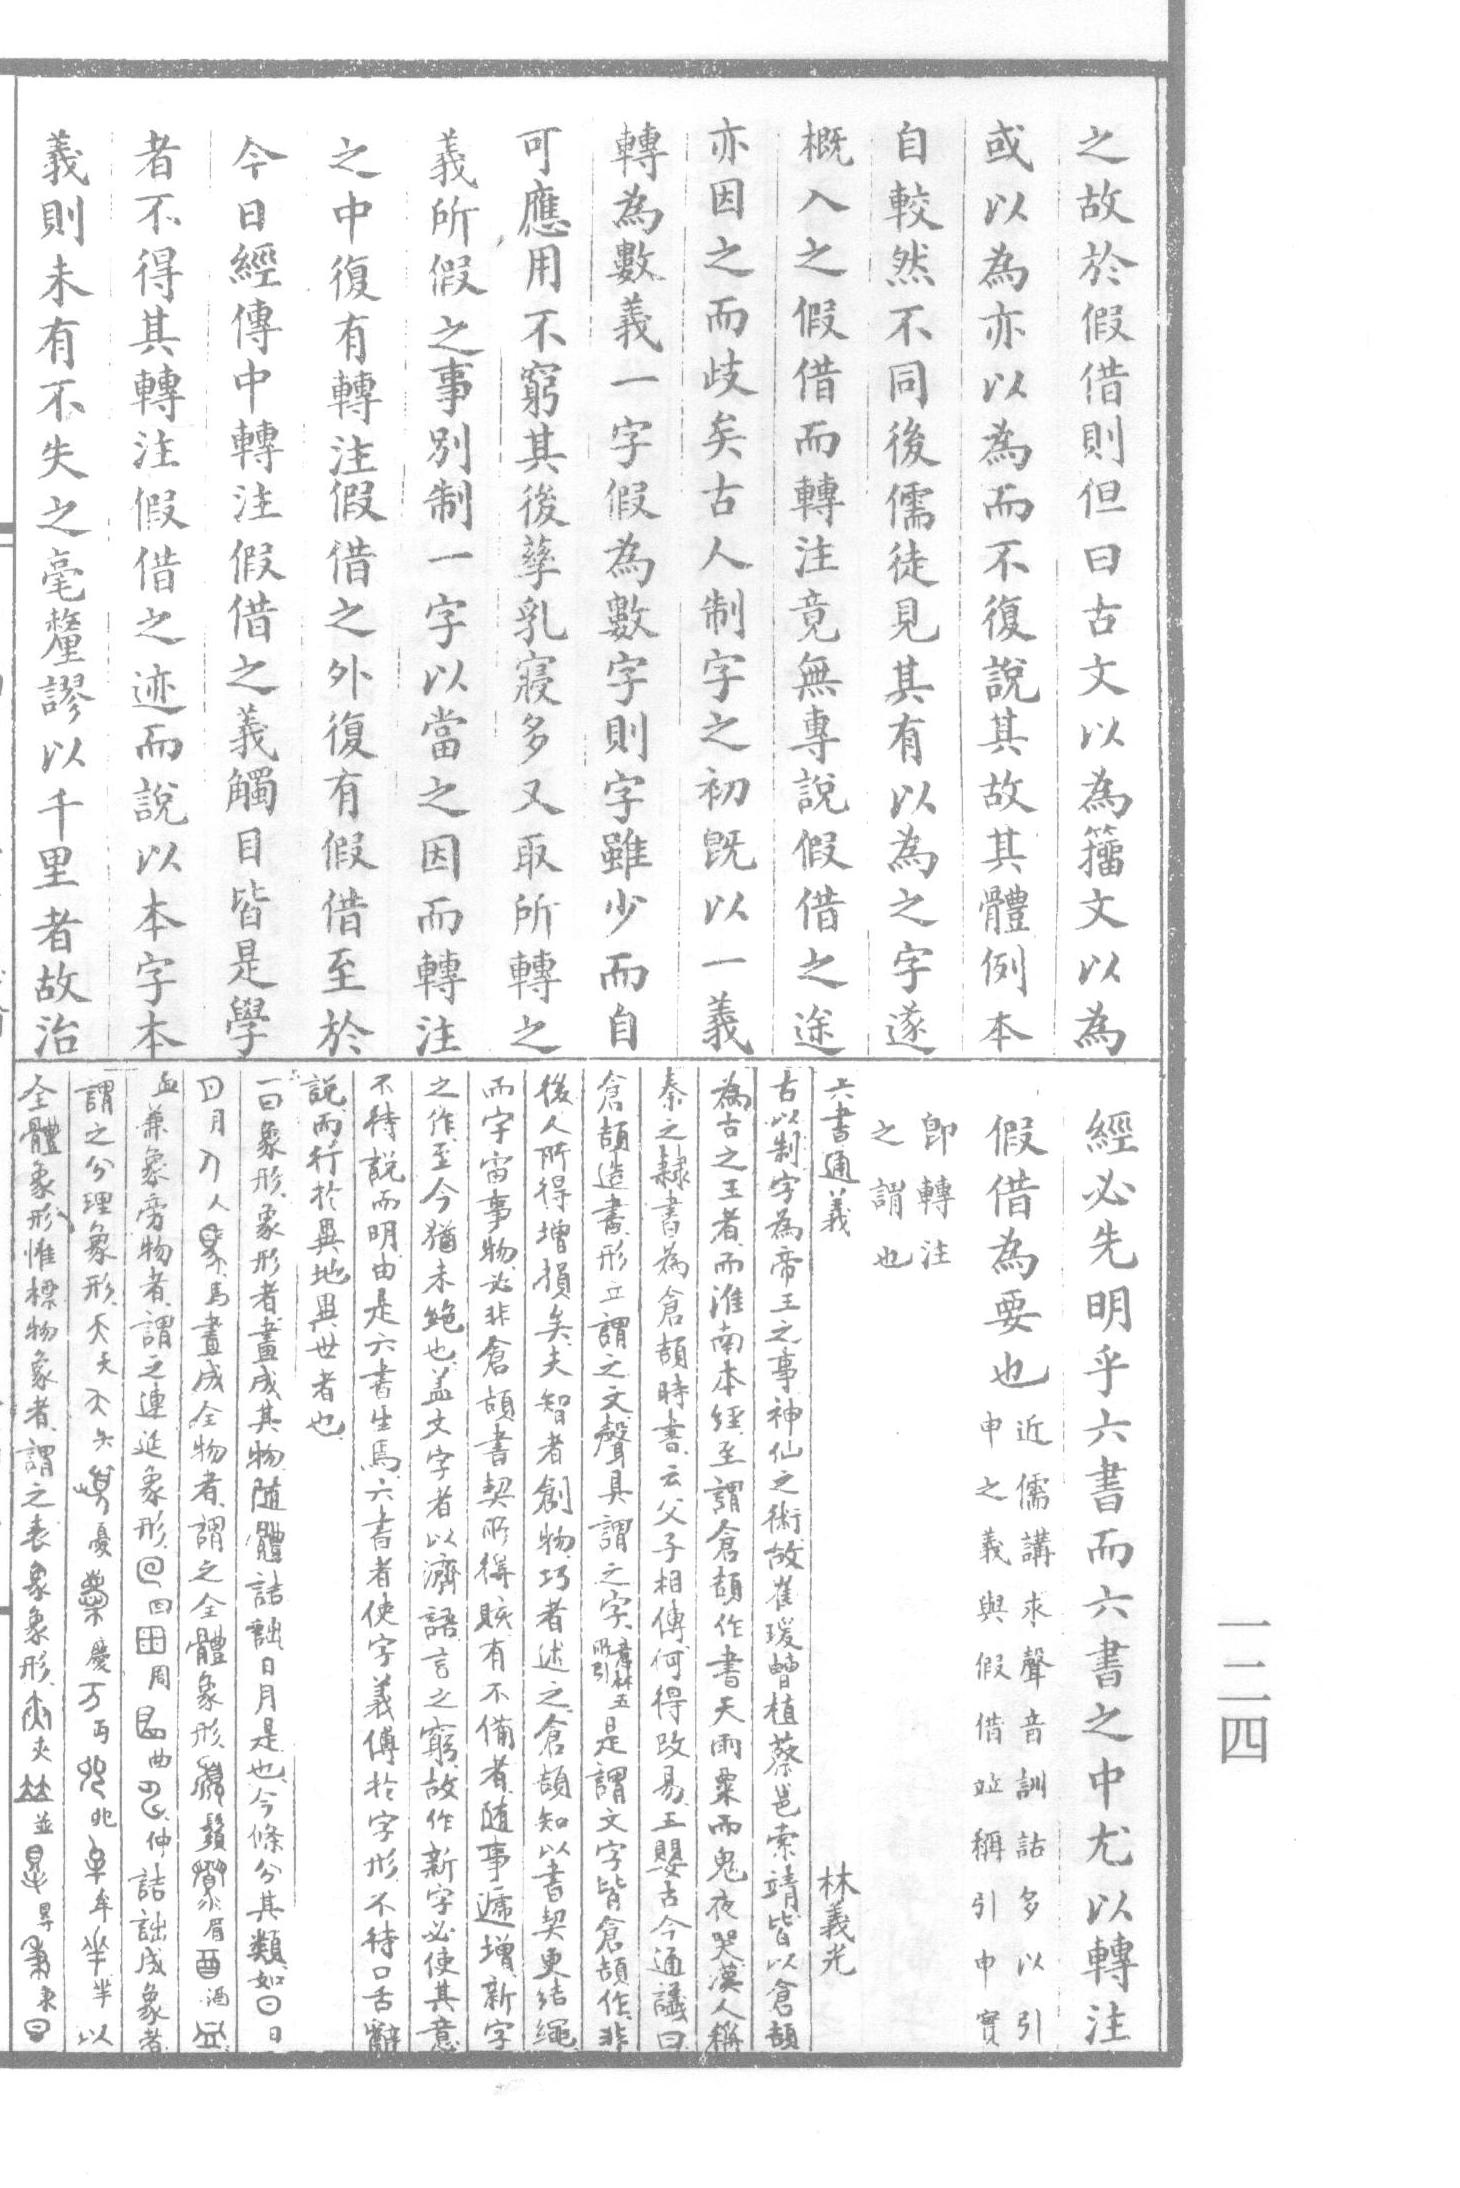 之故於假借則但曰古文以為籀文以為
或以為亦以為而不復說其故其體例本
自較然不同後儒徒見其有以為之字遂
概入之假借而轉注竟無專說假借之途
亦因之而歧矣古人制字之初既以一義
轉為數義一字假為數字則字雖少而自
可應用不窮其後孳乳寖多又取所轉之
義所假之事別制一字以當之因而轉注
之中復有轉注假借之外復有假借至於
今日經傳中轉注假借之義觸目皆是學
者不得其轉注假借之迹而說以本字本
義則未有不失之毫釐謬以千里者故治
經必先明乎六書而六書之中尤以轉注
假借為要也近儒講求聲音訓詁多以引
申之義與假借竝稱引申實
即轉注
之謂也
六書通義 林義光
古以制字為帝王之事神仙之術故崔瑗曹植蔡邕索靖皆以倉頡
為古之王者而淮南本經至謂倉頡作書天雨粟而鬼夜哭漢人稱
秦之隸書為倉頡時書云父子相傳何得改易王嬰古今通議曰
倉頡造書形立謂之文聲具謂之字意林五所引是謂文字皆倉頡作非
後人所得增損矣夫智者創物巧者述之倉頡知以書契更結繩
而宇宙事物必非倉頡書契所得賅有不備者隨事遞增新字
之作至今猶未絕也蓋文字者以濟語言之窮故作新字必使其意
不待說而明由是六書生焉六書者使字義傅於字形不待口舌辭
說而行於異地異世者也
一曰象形象形者畫成其物隨體詰詘日月是也今條分其類如日
月人馬畫成全物者謂之全體象形鬚眉酒
血兼象旁物者謂之連延象形回周曲伸詰詘成象者
謂之分理象形天夭矢憂慶丏兆牟羋以
全體象形惟標物象者謂之表象象形夾並昇東
一二四